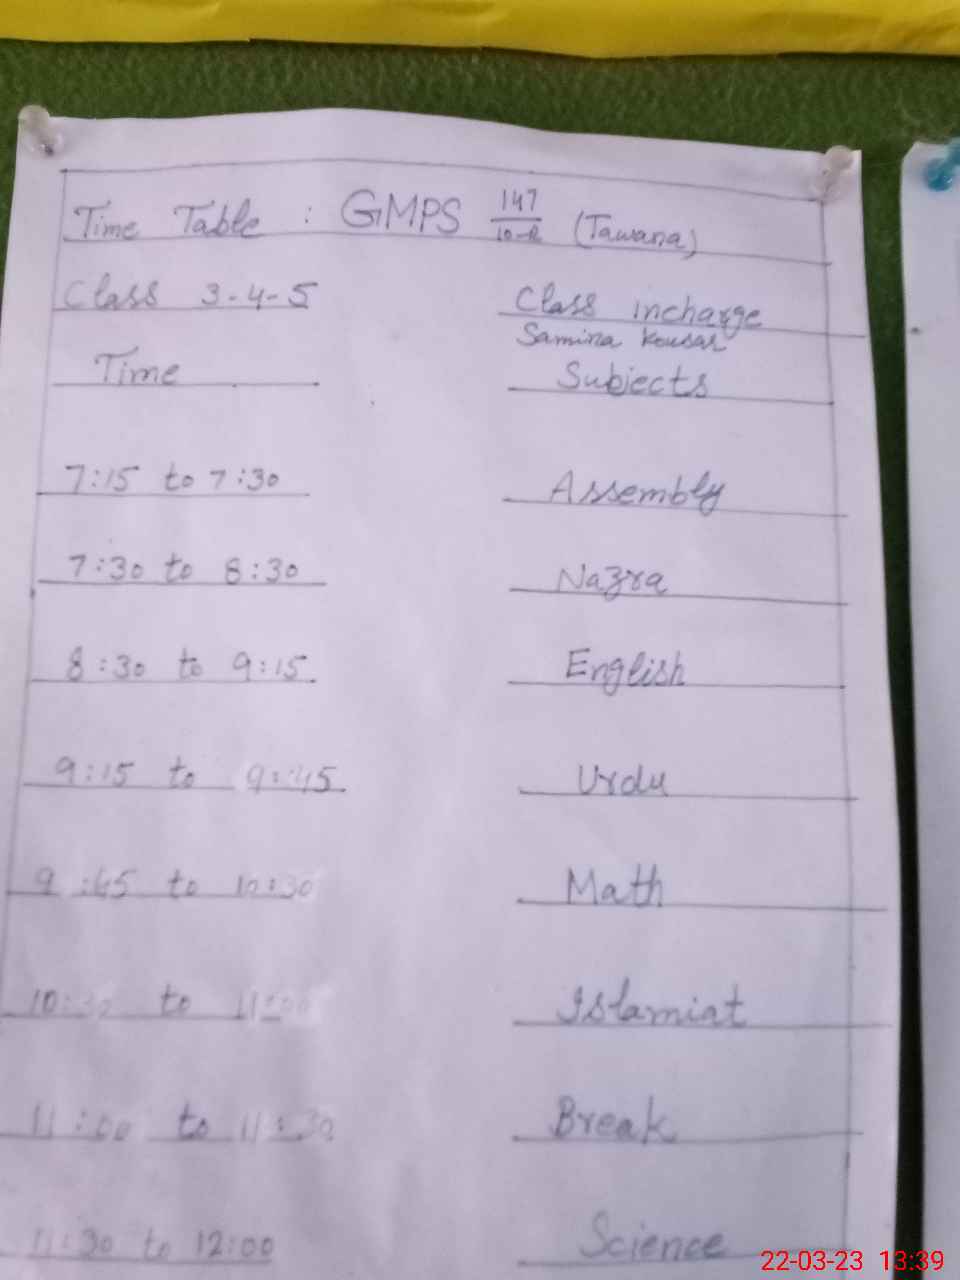 Time Table : GMPS 147/10-R (Tawana)
Class 3-4-5 Class incharge
Samina Kousar
Time Subjects
7:15 to 7:30 Assembly
7:30 to 8:30 Nazra
8:30 to 9:15 English
9:15 to 9:45 Urdu
9:45 to 10:30 Math
10:30 to 11:00 Islamiat
11:00 to 11:30 Break
11:30 to 12:00 Science
22-03-23 13:39